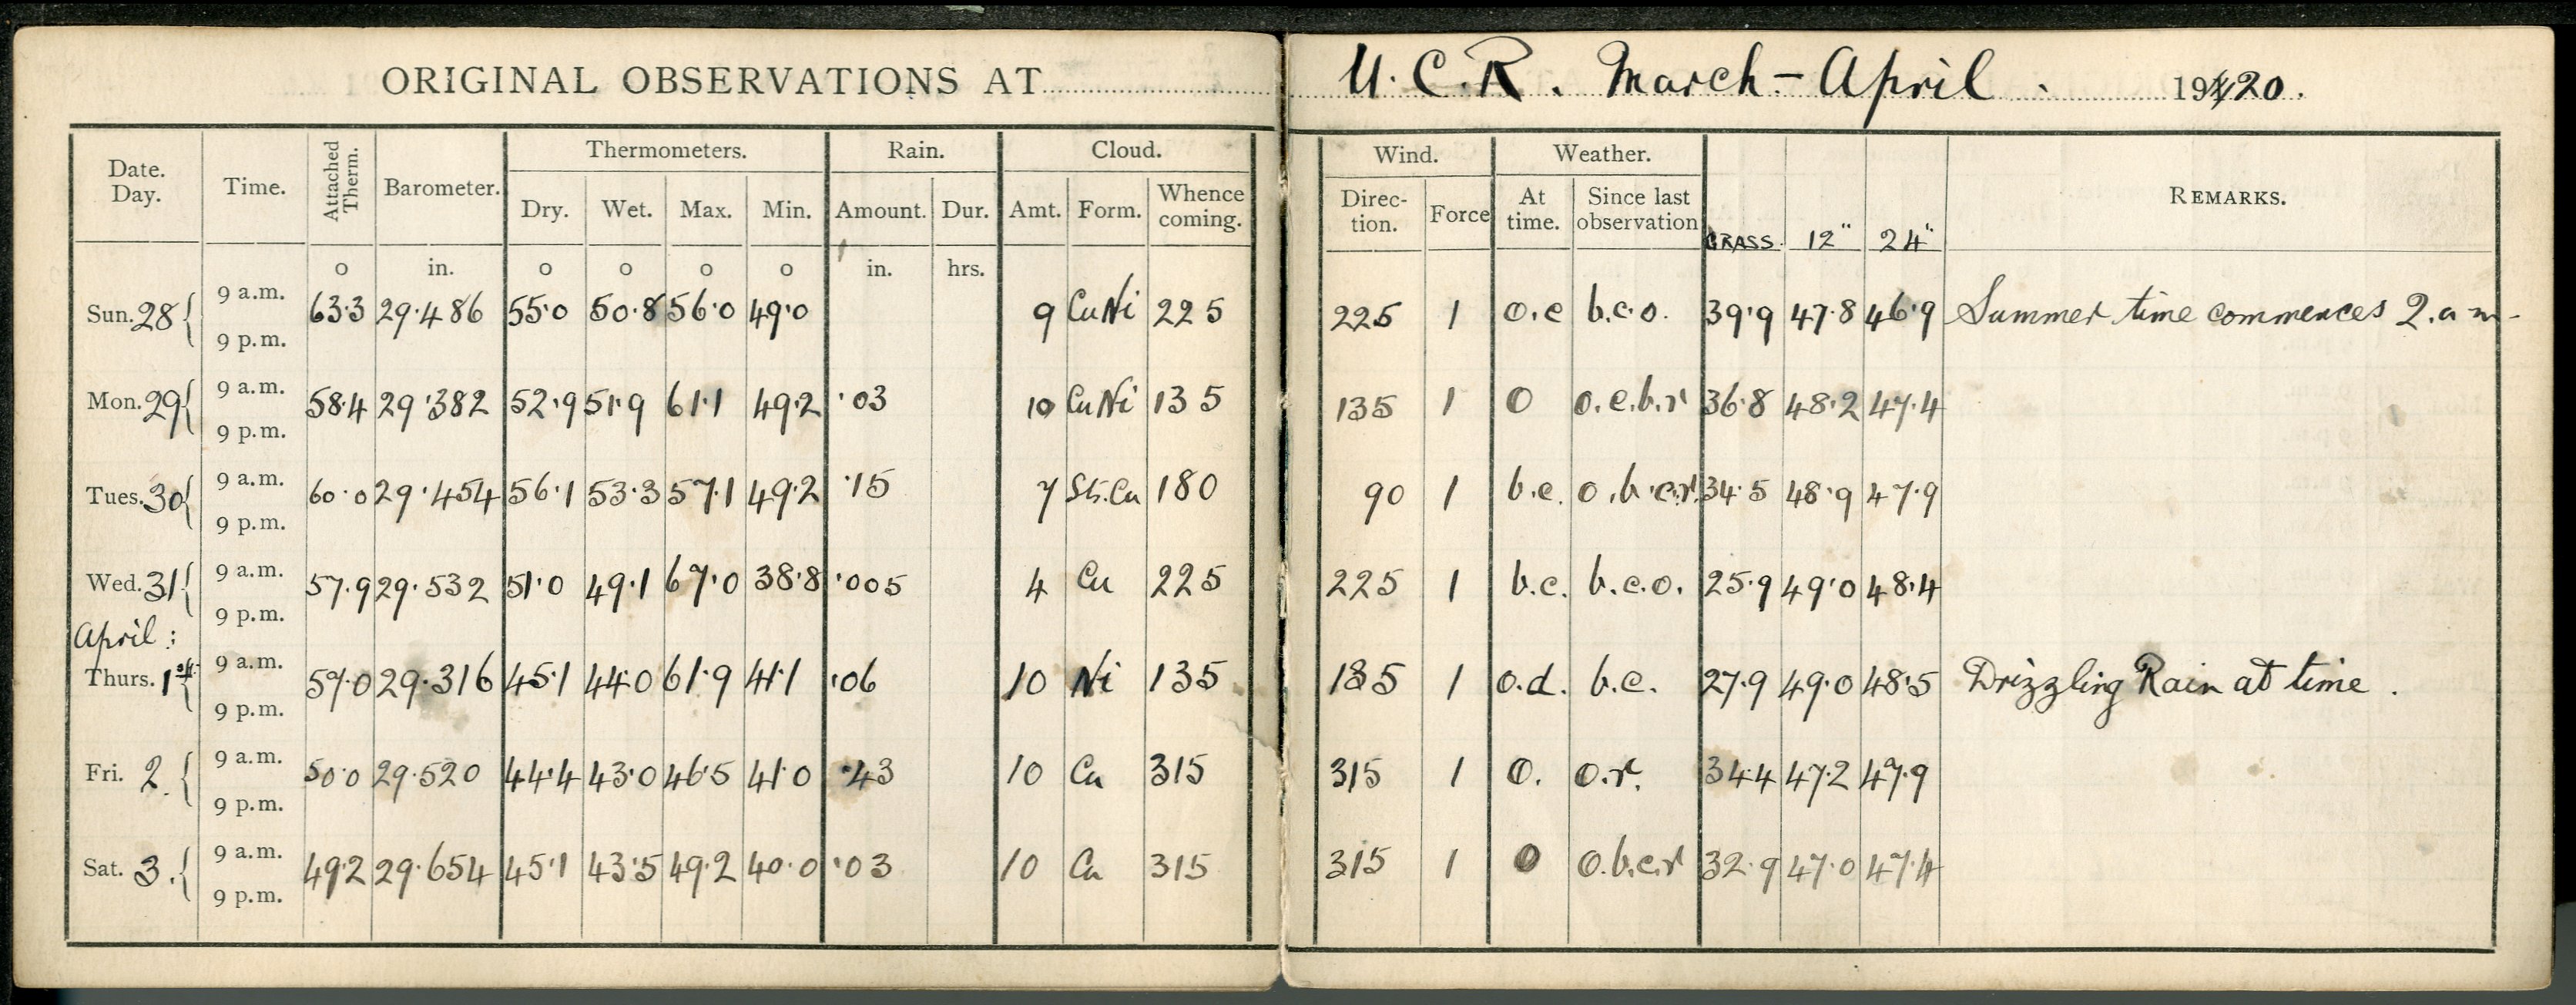 ORIGINAL OBSERVATIONS AT U.C.R. March - April. 1920.
Date. Day. Time. Attached Therm. Barometer. Thermometers. Rain. Cloud. Wind. Weather. REMARKS.
Dry. Wet. Max. Min. Amount. Dur. Amt. Form. Whence coming. Direc-tion. Force At time. Since last observation GRASS. 12" 24"
o in. o o o o in. hrs.
Sun. 28 9 a.m. 63·3 29·486 55·0 50·8 56·0 49·0 9 CuNi 225 225 1 o.c b.c.o. 39·9 47·8 46·9 Summer time commences 2.a.m.
9 p.m.
Mon. 29 9 a.m. 58·4 29·382 52·9 51·9 61·1 49·2 ·03 10 CuNi 135 135 1 O o.c.b.r 36·8 48·2 47·4
9 p.m.
Tues. 30 9 a.m. 60·0 29·454 56·1 53·3 57·1 49·2 ·15 7 St.Cu 180 90 1 b.c. o.b.c.r. 34·5 48·9 47·9
9 p.m.
Wed. 31 9 a.m. 57·9 29·532 51·0 49·1 67·0 38·8 ·005 4 Cu 225 225 1 b.c. b.c.o. 25·9 49·0 48·4
9 p.m.
April:
Thurs. 1st 9 a.m. 57·0 29·316 45·1 44·0 61·9 41·1 ·06 10 Ni 135 135 1 o.d. b.c. 27·9 49·0 48·5 Drizzling Rain at time.
9 p.m.
Fri. 2. 9 a.m. 50·0 29·520 44·4 43·0 46·5 41·0 ·43 10 Cu 315 315 1 O. o.r. 34·4 47·2 47·9
9 p.m.
Sat. 3. 9 a.m. 49·2 29·654 45·1 43·5 49·2 40·0 ·03 10 Cu 315 315 1 O o.b.c.r 32·9 47·0 47·4
9 p.m.